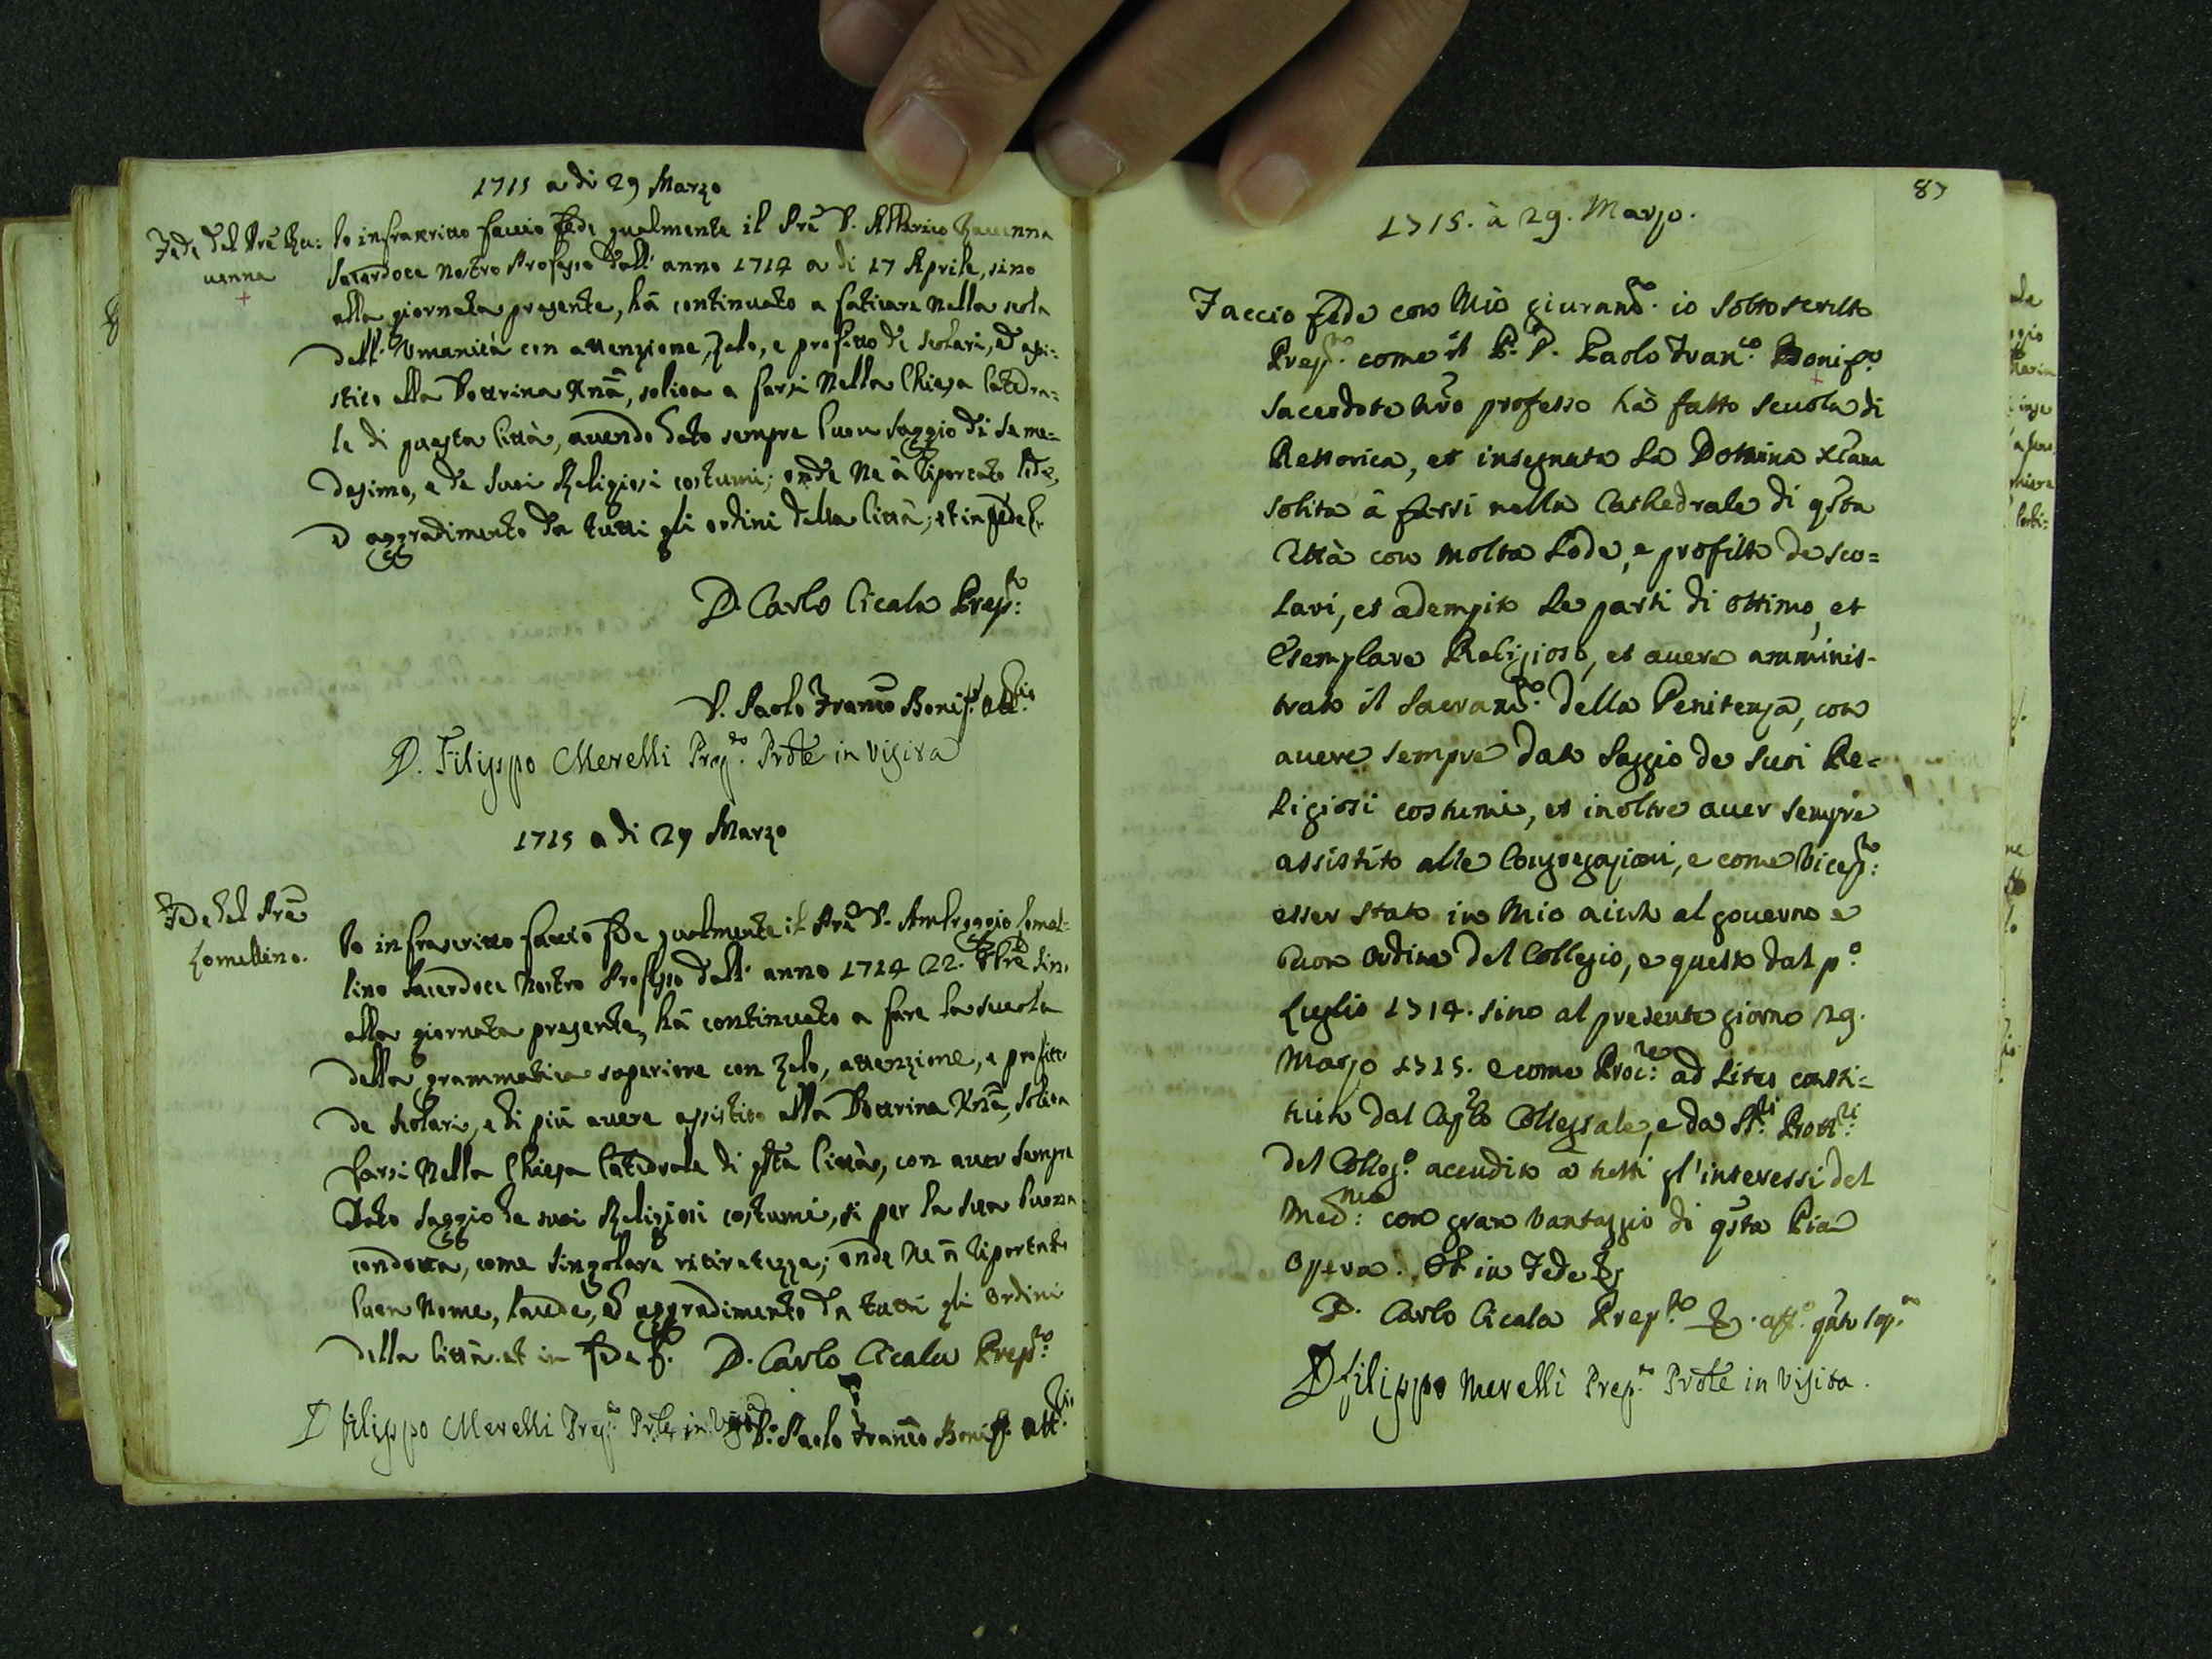 1715 a di 29 Marzo
Fede del Prē Ra:
uenna
Io infrascritto faccio fede qualmente il Prē D. Alberico Rauenna
Sacerdote Nostro Professo dall' anno 1714 a di 17 Aprile, sino
alla giornata presente, hà continuato a faticare nella scola
dell' Vmanità con attenzione, zelo, e profitto de scolari, ed assi:
stito alla Dottrina Xnā, solita a farsi nella Chiesa Catedra:
le di questa Città, auendo dato sempre buon saggio di se me:
desimo, e de suoi Religiosi costumi; onde ne à riportato lode,
ed aggradimento da tutti gli ordini della Città; et in fede &.
D. Carlo Cicala Prep.to
D. Paolo Franco Bonif.
D. Filippo Merelli Prep.to Prōle in visita
1715 a di 29 Marzo
Fede del Prē
Lomellino.
Io infrascritto faccio fede qualmente il Prē D. Ambroggio Lomel:
lino Sacerdote Nostro Professo dall' anno 1714 22. sin
alla giornata presente, hà continuato a fare la scuola
della grammatica superiore con zelo, attenzione, e profitto
de scolari, e di più auere assistito alla Dottrina Xnā, solita
farsi nella Chiesa Catedrale di qsta Città, con auer sempre
dato saggio de suoi Religiosi costumi, si per la sua buona
condotta, come singolare ritiratezza; onde ne à riportato
buon nome, laude, ed aggradimento da tutti gli ordini
della Città. et in fede &. D. Carlo Cicala Prep.to
D Filippo Merelli Prep.to Prōle in D. Paolo Franco Bonif.
87
1715. à 29. Marzo.
Faccio fede con mio giuram.to io sottoscritto
Prep.to come il P. D. Paolo Fran.co Bonif.o
sacerdote nro professo hà fatto scuola di
Rettorica, et insegnata la Dottrina Xtana
solita à farsi nella Cathedrale di qsta
Città con molta lode, e profitto de sco=
lari, et adempito le parti di ottimo, et
esemplare Religioso, et auere amminis-
trato il Sacram.to della Penitenza, con
auere sempre dato saggio de suoi Re=
ligiosi costumi, et inoltre auer sempre
assistito alle Congregazioni, e come Vicep.to:
esser stato in mio aiuto al gouerno e
buon ordine del Collegio, e questo dal p.o
Luglio 1714. sino al presente giorno 29.
Marzo 1715. e come Proc.re: ad lites consti=
tuito dal Cap.lo Collegiale, e da SS.ri Prott.ri
del Colleg.o accudito à tutti gl'interessi del
med.mo: con gran vantaggio di qsta Pia
opera. Et in fede &
D. Carlo Cicala Prep.to &. aff.o
D Filippo Merelli Prep.to Prōle in visita.